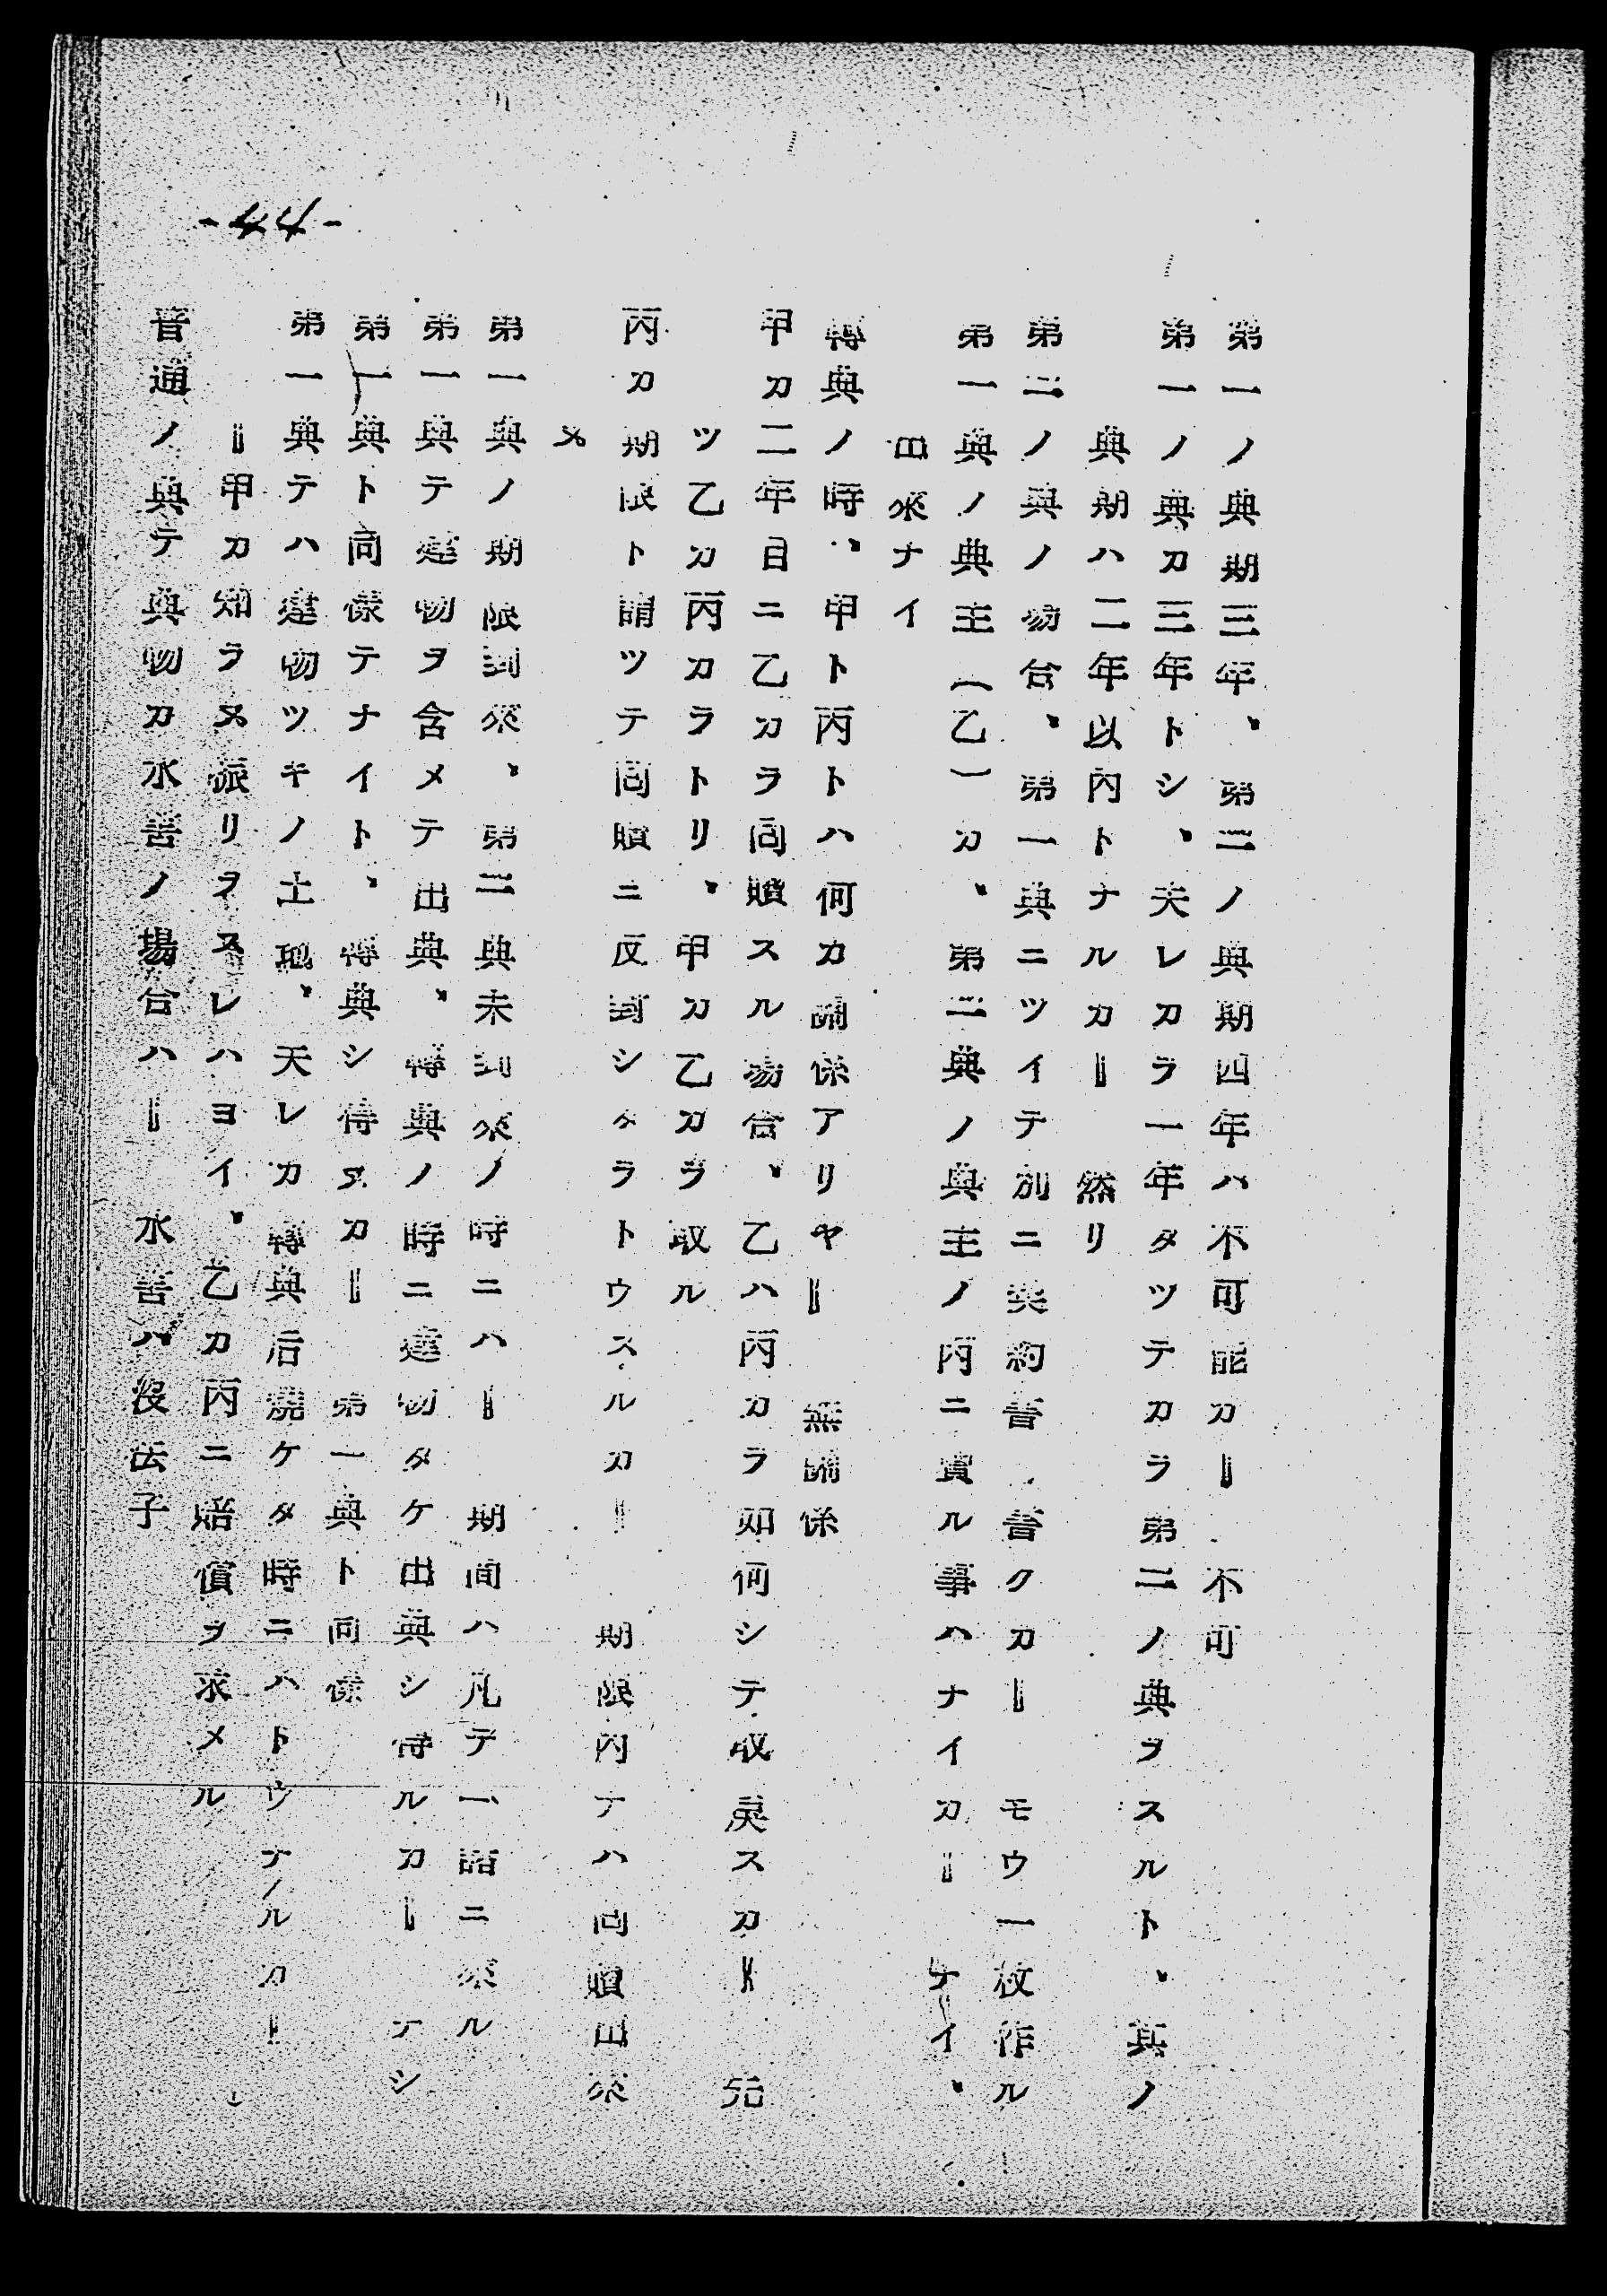 -44-
第一ノ典期三年、第二ノ典期四年ハ不可能カ‖ 不可
第一ノ典カ三年トシ、夫レカラ一年タツテカラ第二ノ典ヲスルト、其ノ
典期ハ二年以內トナルカ‖ 然リ
第二ノ典ノ場合、第一典ニツイテ別ニ契約書 書クカ‖ モウ一枚作ル
第一典ノ典主(乙)カ、第二典ノ典主ノ丙ニ賣ル事ハナイカ‖ ナイ、
出來ナイ
轉典ノ時、甲ト丙トハ何カ關係アリヤ‖ 無關係
甲カ二年目ニ乙カラ囘贖スル場合、乙ハ丙カラ如何シテ取戾スカ‖ 先
ツ乙カ丙カラトリ、甲カ乙カラ取ル
丙カ期限ト謂ツテ囘贖ニ反對シタラトウスルカ‖ 期限內テハ囘贖出來
ヌ
第一典ノ期限到來、第二典未到來ノ時ニハ‖ 期間ハ凡テ一諸ニ來ル
第一典テ建物ヲ含メテ出典、轉典ノ時ニ建物タケ出典シ得ルカ‖ テシ
第一典ト同樣テナイト、轉典シ得ヌカ‖ 第一典ト同樣
第一典テハ建物ツキノ土地、夫レカ轉典后燒ケタ時ニハトウナルカ‖
‖甲カ知ラヌ振リヲスレハヨイ、乙カ丙ニ賠償ヲ求メル
普通ノ典テ典物カ水害ノ場合ハ‖ 水害ハ沒法子